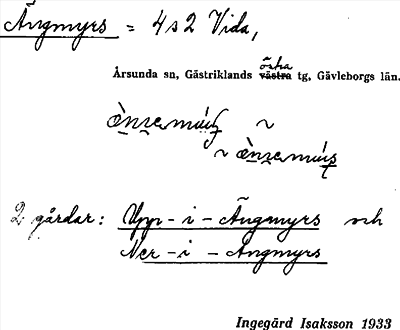 Ängmyrs = 4 s 2 Vida,
östra
Årsunda sn, Gästriklands västra tg, Gävleborgs län.
~
~
2 gårdar: Upp-i-Ängmyrs och
Ner-i-Ängmyrs
Ingegärd Isaksson 1933